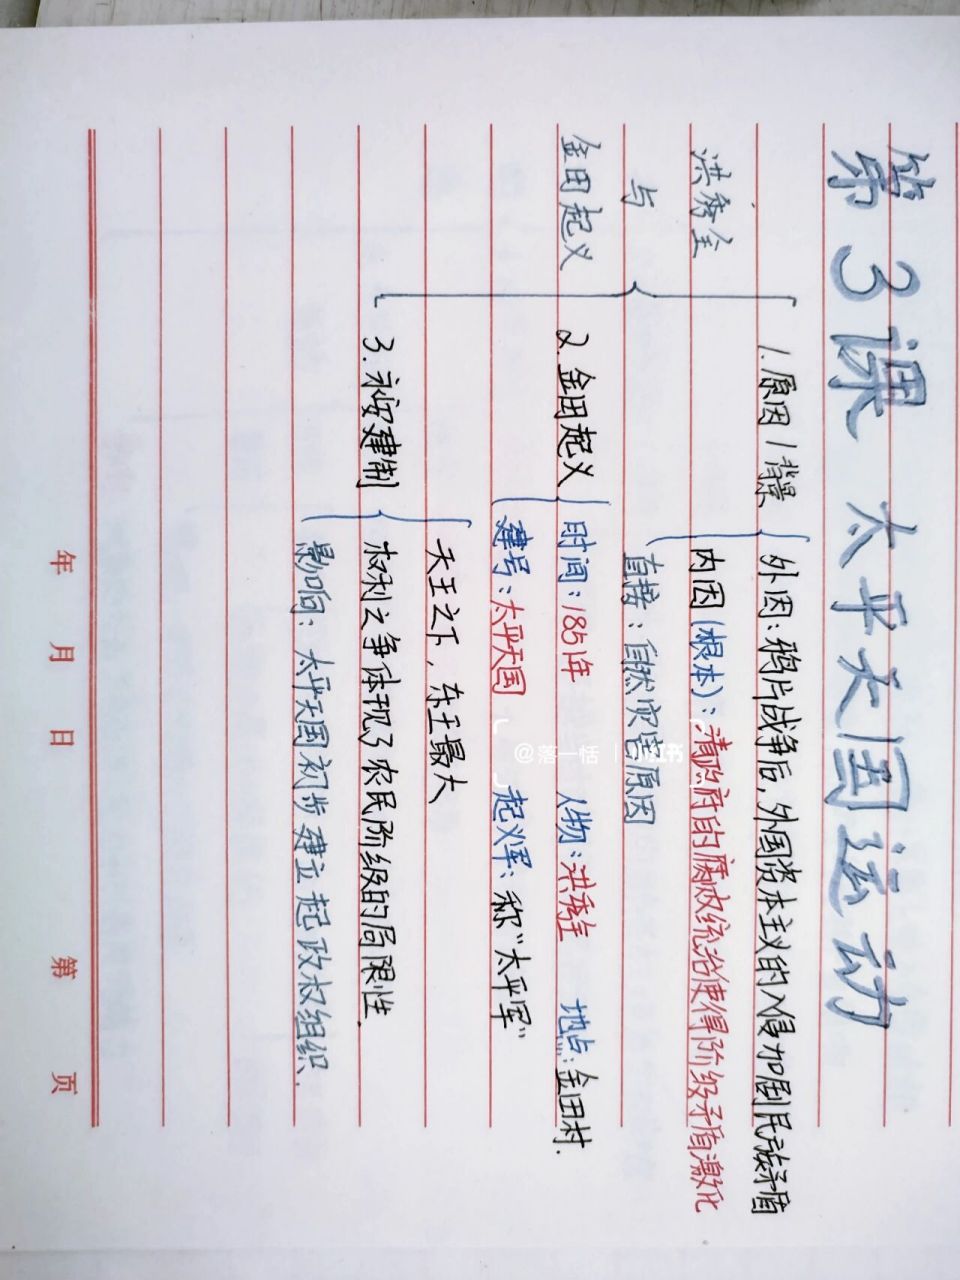 第3课 太平天国运动
洪秀全
与
金田起义
1.原因/背景
外因：鸦片战争后，外国资本主义的入侵加剧民族矛盾
内因（根本）：清政府的腐败统治使得阶级矛盾激化
直接：自然灾害原因
2.金田起义
时间：1851年 人物：洪秀全 地点：金田村.
建号：太平天国 起义军：称“太平军”
3.永安建制
天王之下，东王最大
权利之争体现了农民阶级的局限性.
影响：太平天国初步建立起政权组织.
@落一恬 | 小红书
年 月 日 第 页